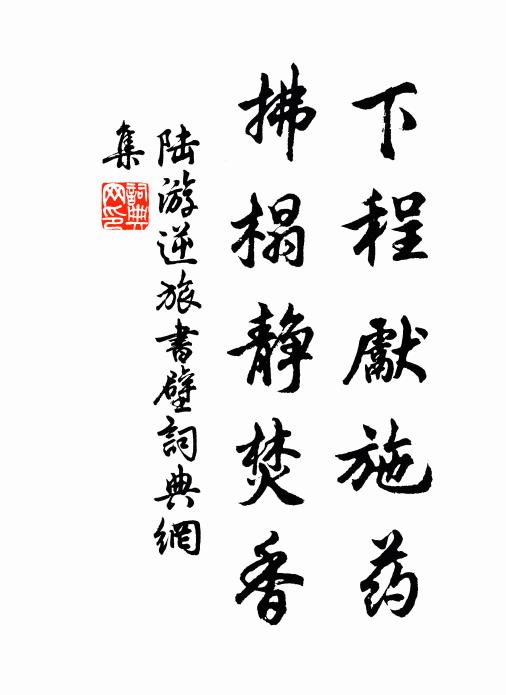 下程獻施药
拂榻静焚香
陆游逆旅書壁詞典網
集
詞典网印